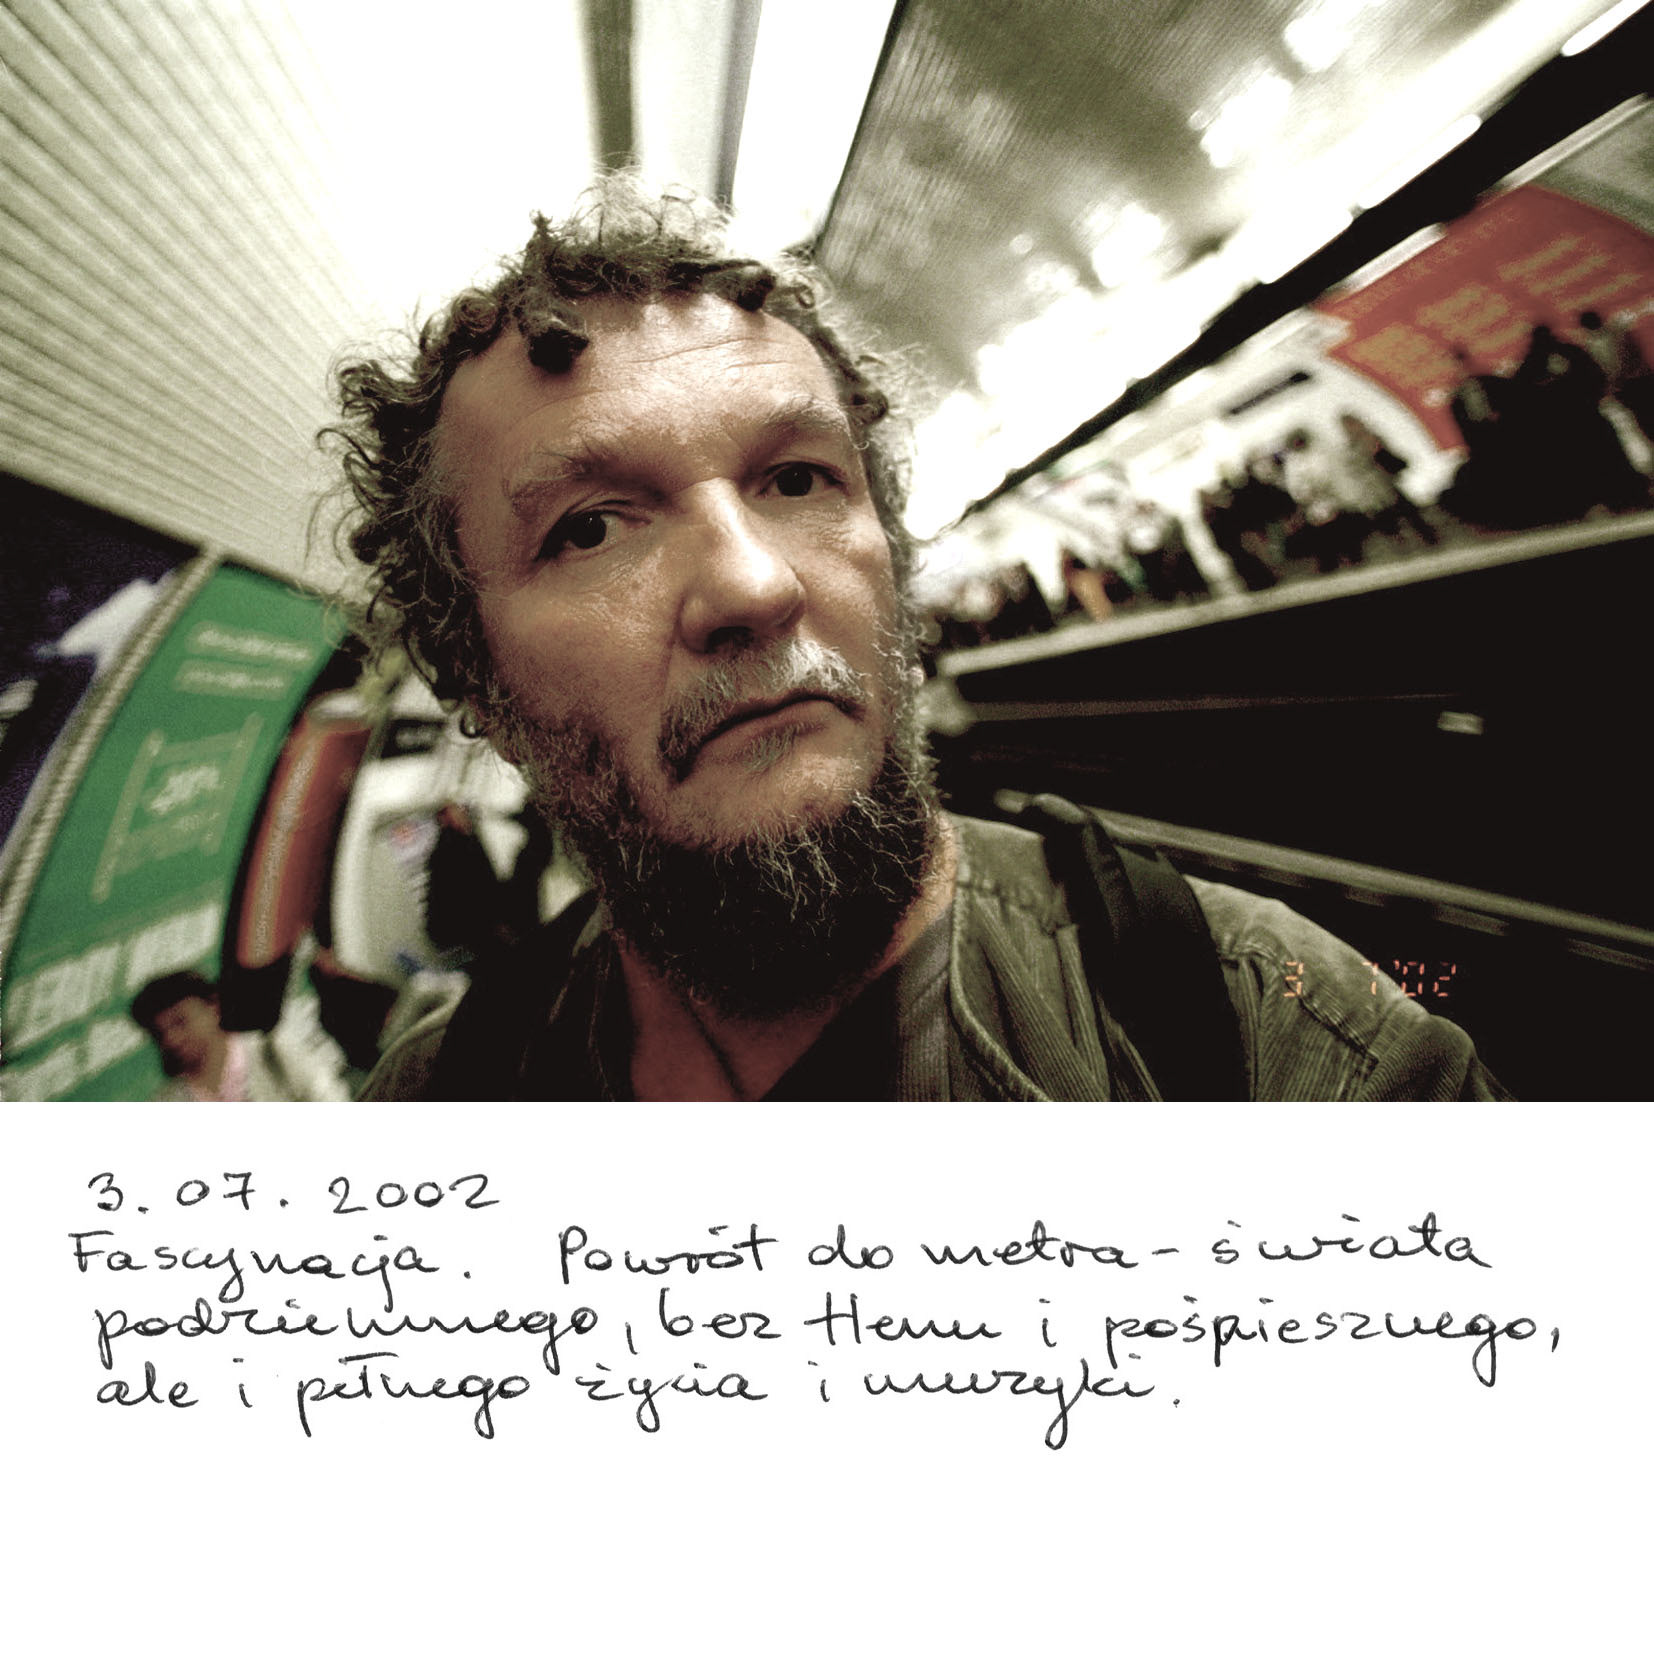 3 7'02
3.07.2002
Fascynacja. Powrót do metra - świata
podziemnego, bez tlenu i pośpiesznego,
ale i pełnego życia i muzyki.